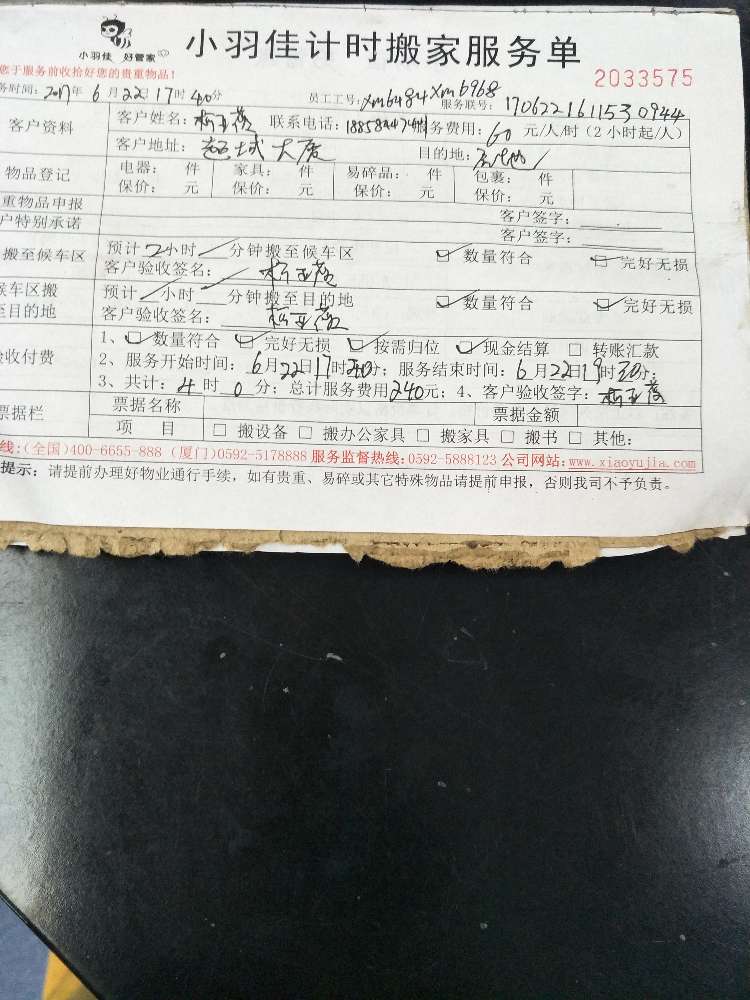 小羽佳 好管家
小羽佳计时搬家服务单
您于服务前收拾好您的贵重物品！
2033575
务时间：2017年6月22日17时40分 员工工号：xm6484 xm6968 服务联号：170622161153 0944
客户资料 客户姓名： 联系电话： 务费用：60元/人/时（2小时起/人）
客户地址： 大厦 目的地：
物品登记 电器： 件 家具： 件 易碎品： 件 包裹： 件
保价： 元 保价： 元 保价： 元 保价： 元
重物品申报 客户签字：
户特别承诺 客户签字：
搬至候车区 预计2小时 分钟搬至候车区 ☑ 数量符合 ☑ 完好无损
客户验收签名：
候车区搬 预计 小时 分钟搬至目的地 ☑ 数量符合 ☑ 完好无损
至目的地 客户验收签名：
验收付费 1、☑ 数量符合 ☑ 完好无损 ☑ 按需归位 ☑ 现金结算 □ 转账汇款
2、服务开始时间：6月22日17时 分；服务结束时间：6月22日19时30分；
3、共计：4时0分；总计服务费用240元；4、客户验收签字：
票据栏 票据名称 票据金额
项 目 □ 搬设备 □ 搬办公家具 □ 搬家具 □ 搬书 □ 其他:
线:(全国)400-6655-888 (厦门)0592-5178888 服务监督热线:0592-5888123 公司网站:www.xiaoyujia.com
提示：请提前办理好物业通行手续，如有贵重、易碎或其它特殊物品请提前申报，否则我司不予负责。